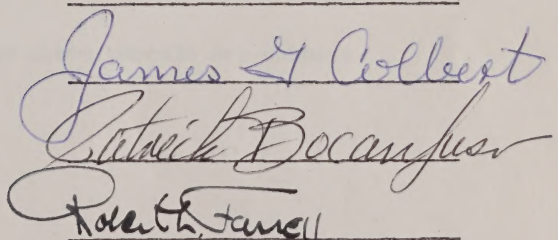 James G Colbert
Patrick Bocanfuso
Robert L. Farrell